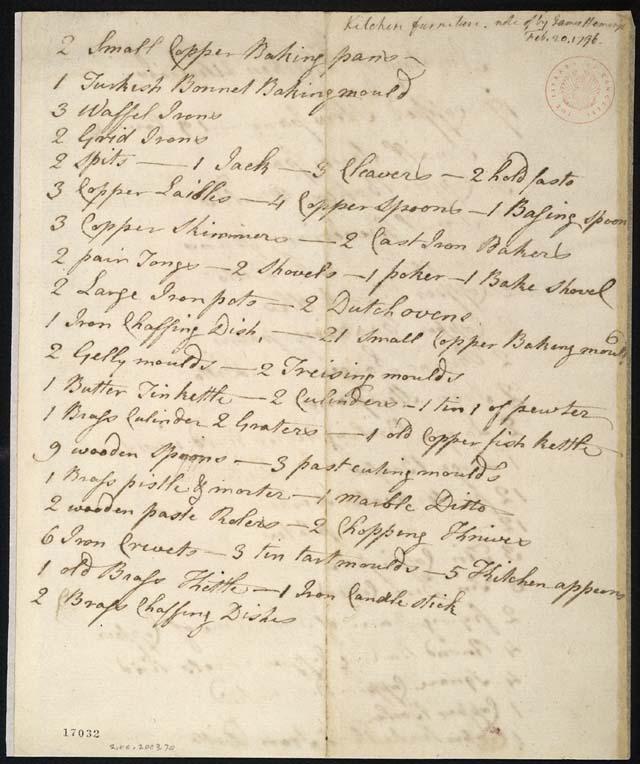 Kitchen furniture. note of by James Hemings
Feb. 20. 1796.
THE LIBRARY OF CONGRESS
2 Small Copper Baking pans
1 Turkish Bonnet Baking mould
3 Waffel Irons
2 Grid Irons
2 Spits — 1 Jack — 3 Cleavers — 2 hold fasts
3 Copper Laidles — 4 Copper Spoons — 1 Basing Spoon
3 Copper Skimmers — 2 Cast Iron Bakers
2 pair Tongs — 2 Shovels — 1 poker — 1 Bake Shovel
2 Large Iron pots — 2 Dutch ovens
1 Iron Chaffing Dish, — 21 Small Copper Baking moulds
2 Gelly moulds — 2 Freising moulds
1 Butter Tin kettle — 2 Culinders — 1 tin 1 of pewter
1 Brass Culinder 2 Graters — 1 old Copper fish kettle
9 wooden Spoons — 3 past cuting moulds
1 Brass pistle & morter — 1 marble Ditto
2 wooden paste Rolers — 2 Chopping Knives
6 Iron Crevets — 3 tin tart moulds — 5 Kitchen apperns
1 old Brass Kittle — 1 Iron Candle stick
2 Brass Chaffing Dishes
17032